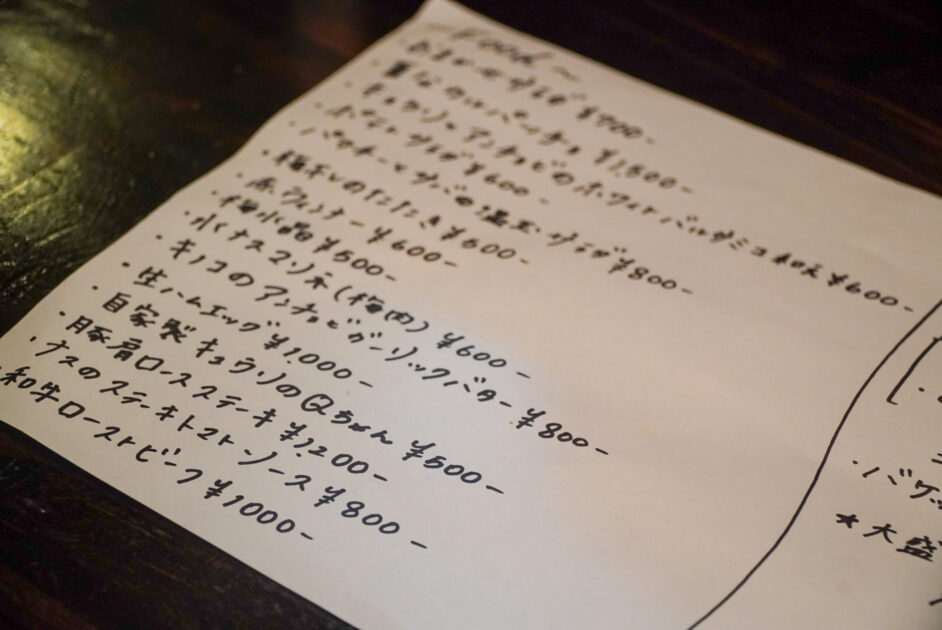 Food~
・おまかせサラダ ¥700-
・のカルパッチョ ¥1,500-
・キュウリとアンチョビのホワイトバルサミコ和え ¥600-
・サラダ ¥600-
・パクチーとサバの温玉サラダ ¥800-
・梅干しのたたき ¥500-
・赤ウィンナー ¥600-
・梅水晶 ¥500-
・水ナスマリネ(梅肉) ¥600-
・キノコのアンチョビガーリックバター ¥800-
・生ハムエッグ ¥1,000-
・自家製キュウリのQちゃん ¥500-
・豚肩ロースステーキ ¥1,200-
・ナスのステーキトマトソース ¥800-
・和牛ローストビーフ ¥1000-
・バゲッ
★大盛